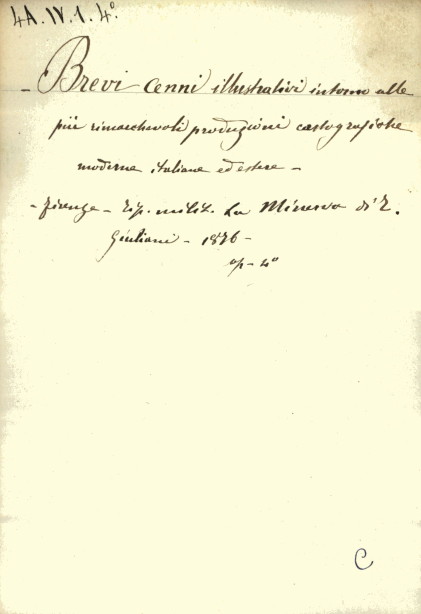 4A. IV. 1. 4º.
- Brevi cenni illustrativi intorno alle
più rimarchevoli produzioni cartografiche
moderne italiane ed estere -
- Firenze - Tip. milit. La Minerva di L.
Giuliani - 1876 -
op - 4º
C